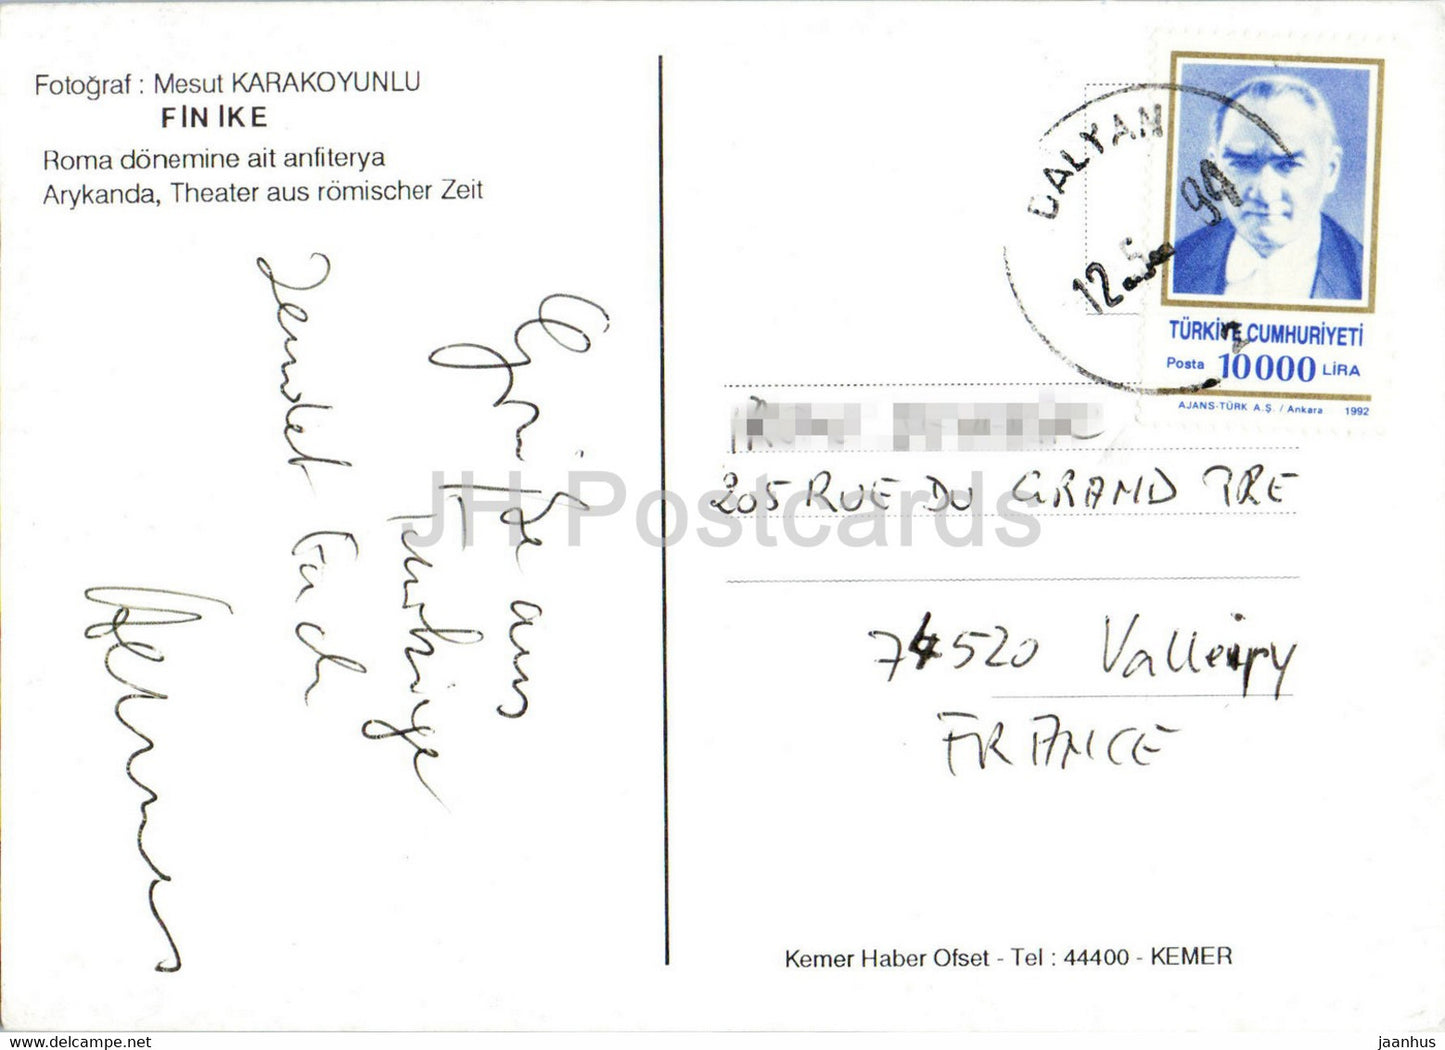 Fotoğraf : Mesut KARAKOYUNLU
FİNİKE
Roma dönemine ait anfiterya
Arykanda, Theater aus römischer Zeit
aus
sendet Euch
DALYAN
12 94
TÜRKİYE CUMHURİYETİ
Posta 10000 LİRA
AJANS-TÜRK A.Ş. / Ankara 1992
205 RUE DU GRAND PRE
74520 Valleiry
FRANCE
Kemer Haber Ofset - Tel : 44400 - KEMER
JH Postcards
hippostcard.com
jaanhus